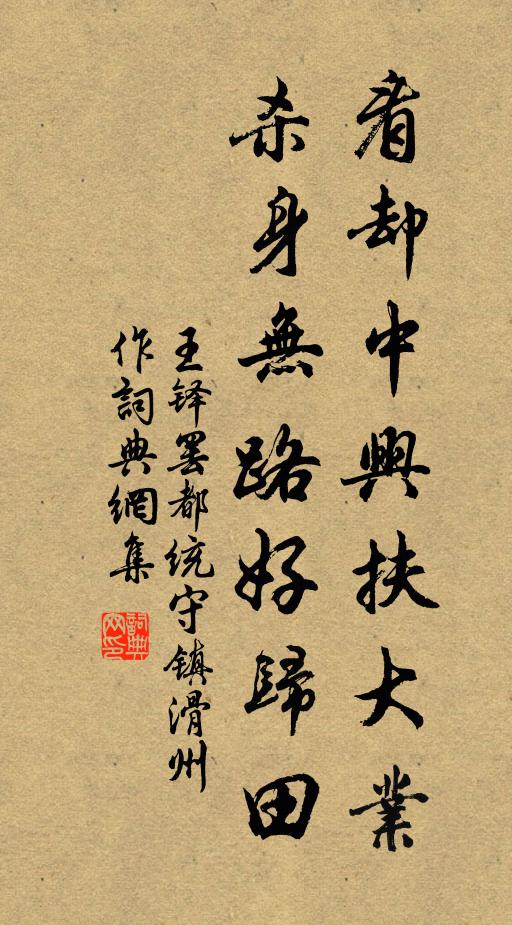 看却中興扶大業
杀身無路好歸田
王铎罢都统守镇滑州
作詞典網集
詞典网印